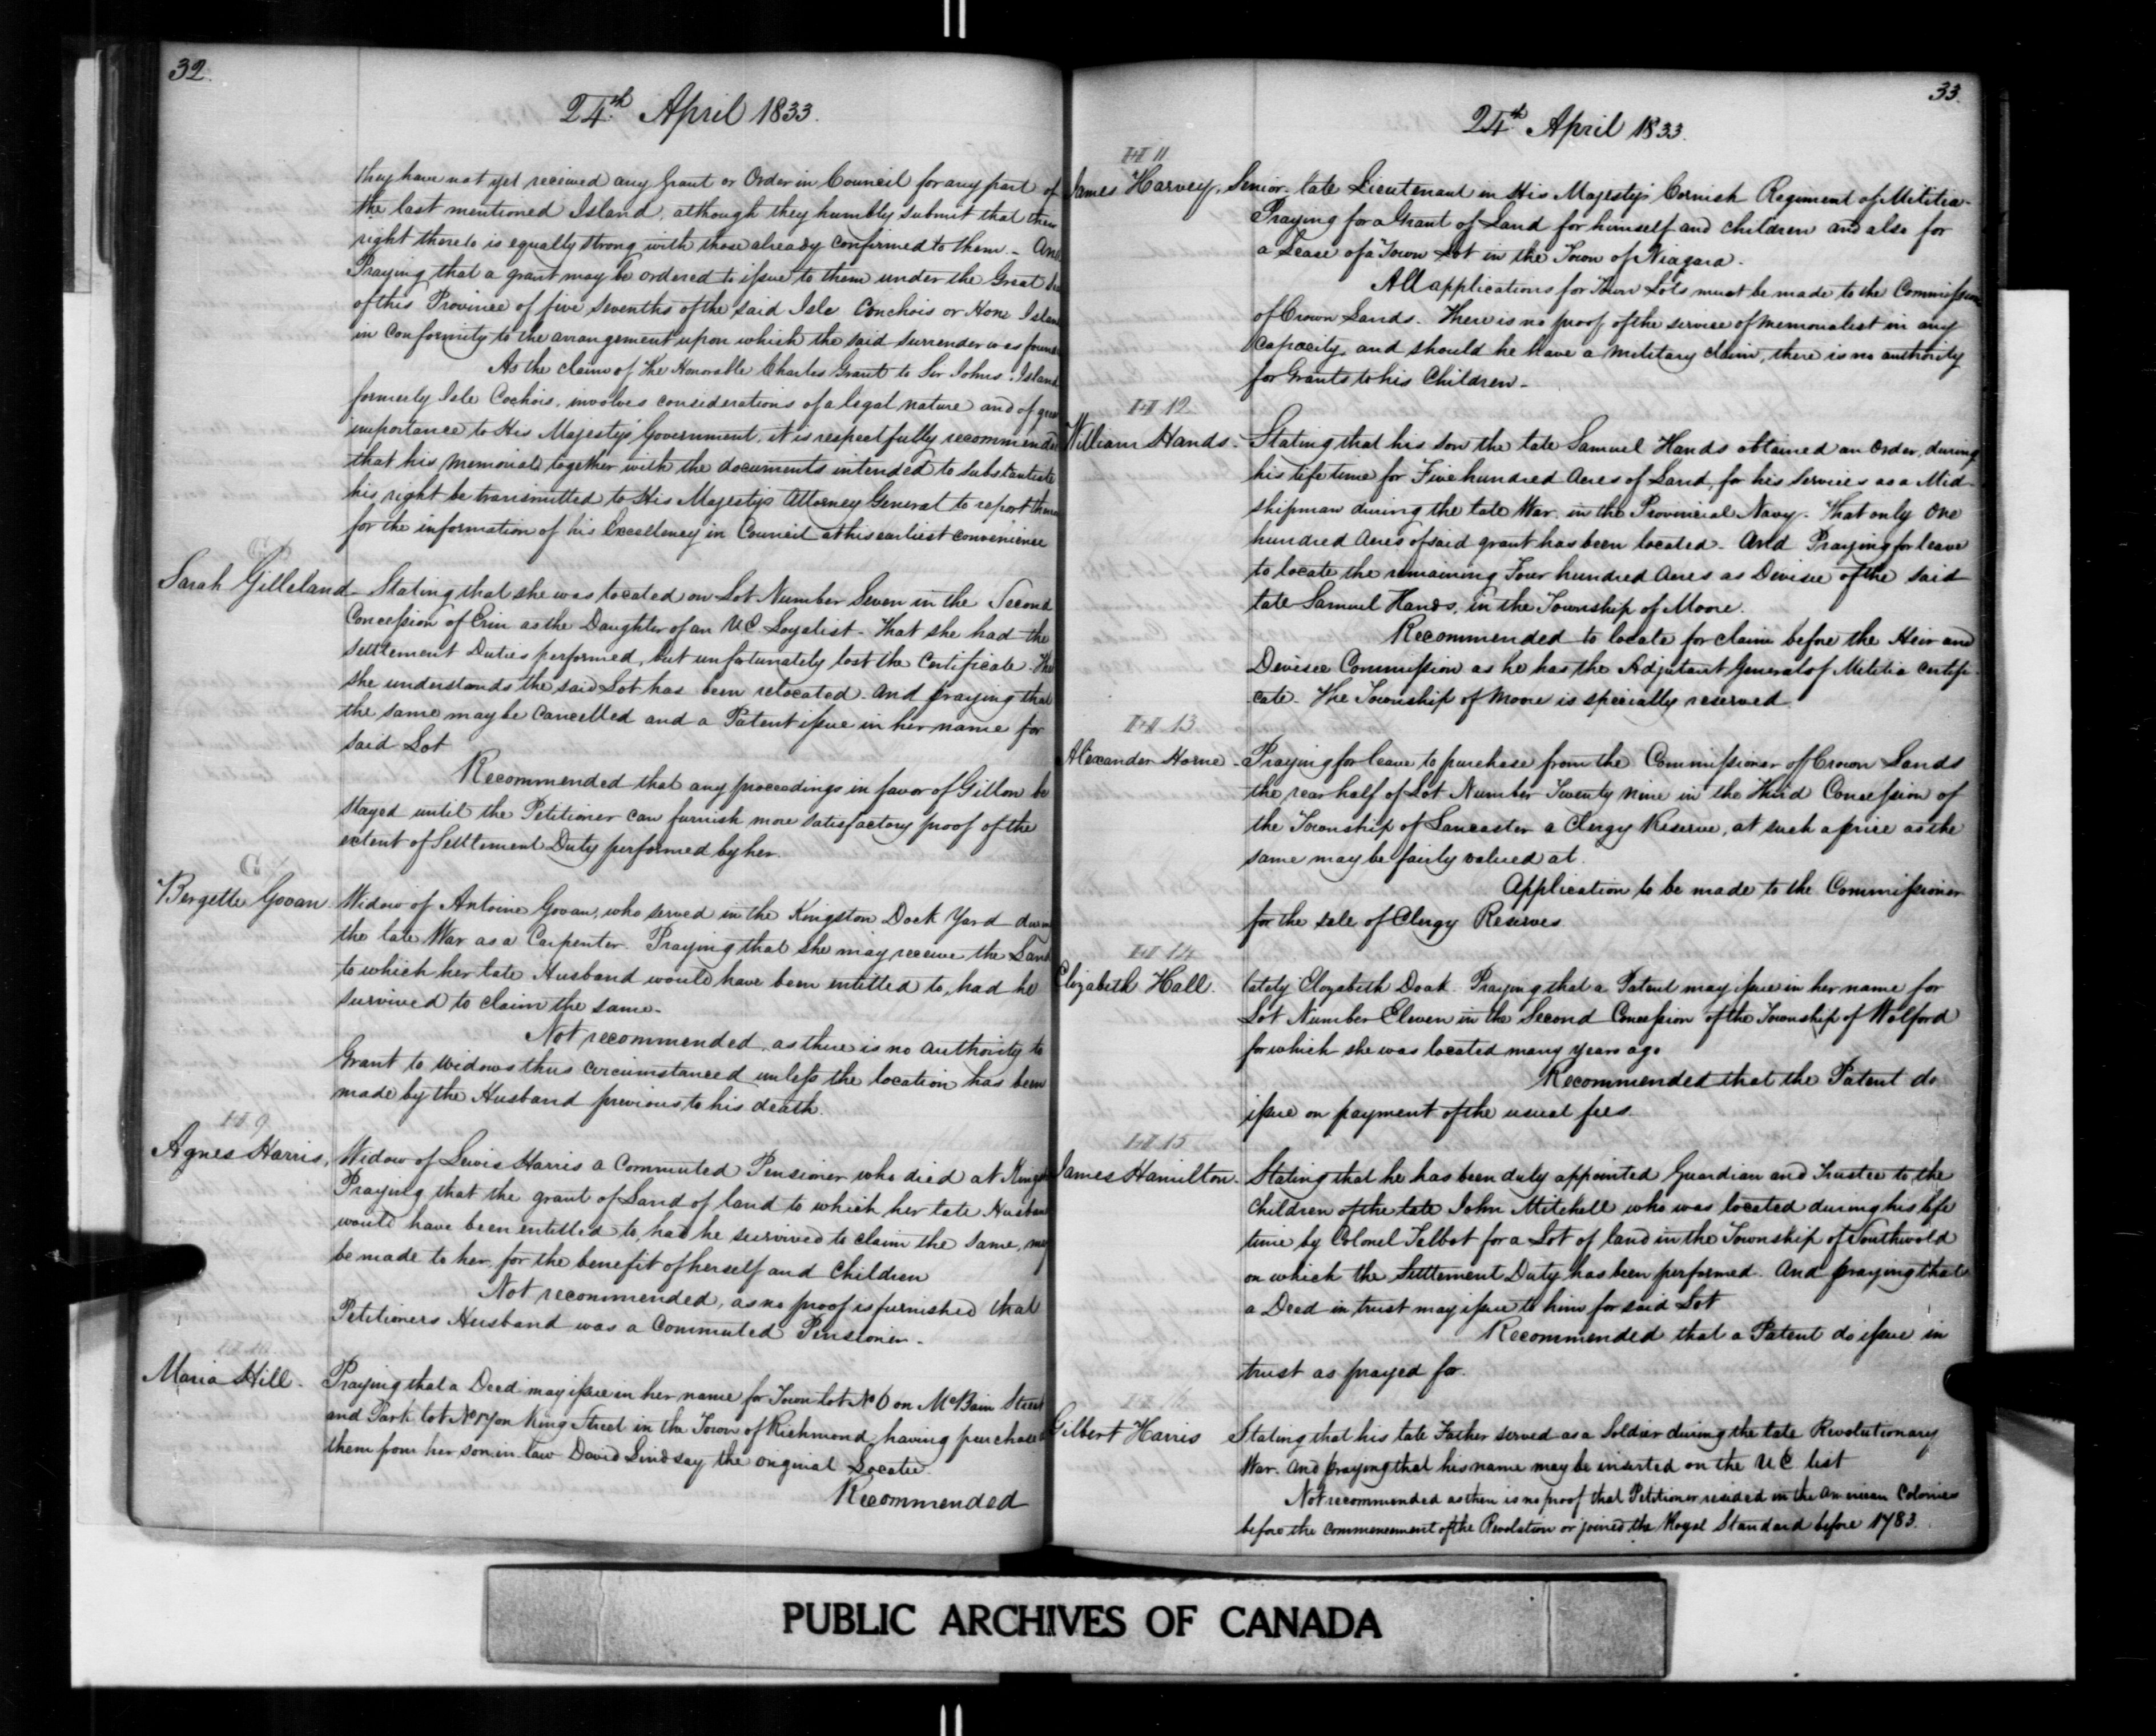 32.
24th April 1833.
they have not yet received any Grant or Order in Council for any part of
the last mentioned Island, although they humbly submit that their
right thereto is equally strong with those already confirmed to them. And
Praying that a grant may be ordered to issue to them under the Great
of this Province of five sevenths of the said Isle Conchois or Hone Island
in conformity to the arrangement upon which the said surrender was
As the claim of the Honorable Charles Grant to Sir Johns Island
formerly Isle Cochois, involves considerations of a legal nature and of
importance to His Majesty's Government, it is respectfully recommended
that his memorial together with the documents intended to substantiate
his right be transmitted to His Majesty's Attorney General to report
for the information of his Excellency in Council at his earliest convenience
G
Sarah Gilleland - Stating that she was located on Lot Number Seven in the Second
Concession of Erin as the Daughter of an U E Loyalist - That she had the
settlement Duties performed, but unfortunately lost the Certificate.
she understands the said Lot has been relocated. And praying that
the same may be cancelled and a Patent issue in her name for
said Lot
Recommended that any proceedings in favor of Gillon be
stayed until the Petitioner can furnish more satisfactory proof of the
extent of Settlement Duty performed by her.
G
Bergette Govan Widow of Antoine Govan, who served in the Kingston Dock Yard
the late War as a Carpenter. Praying that she may receive the Land
to which her late Husband would have been entitled to, had he
survived to claim the same.
Not recommended, as there is no authority to
Grant to Widows thus circumstanced unless the location has been
made by the Husband previous to his death.
H 9
Agnes Harris, Widow of Lewis Harris a Commuted Pensioner who died at
Praying that the grant of Land of land to which her late Husband
would have been entitled to, had he survived to claim the same, may
be made to her, for the benefit of herself and Children
Not recommended, as no proof is furnished that
Petitioners Husband was a Commuted Pensioner.
H 10
Maria Hill. Praying that a Deed may issue in her name for Town lot No 6 on McBain Street
and Park lot No 17 on King Street in the Town of Richmond, having purchased
them from her son in law David Lindsay the original Locatee.
Recommended
33
24th April 1833.
H 11
James Harvey, Senior. late Lieutenant in His Majesty's Cornish Regiment of Militia.
Praying for a Grant of Land for himself and children and also for
a Lease of a Town Lot in the Town of Niagara.
All applications for Town Lots must be made to the Commissioner
of Crown Lands. There is no proof of the service of memorialist in any
capacity, and should he have a military claim, there is no authority
for Grants to his Children.
H 12
William Hands - Stating that his son the late Samuel Hands obtained an Order, during
his life time for Five hundred Acres of Land for his services as a Mid-
shipman during the late War in the Provincial Navy. That only One
hundred Acres of said grant has been located. And Praying for leave
to locate the remaining Four hundred Acres as Devisee of the said
late Samuel Hands, in the Township of Moore.
Recommended to locate for claim before the Heir and
Devisee Commission as he has the Adjutant General of Militia certifi-
cate. The Township of Moore is specially reserved.
H 13
Alexander Horne - Praying for leave to purchase from the Commissioner of Crown Lands
the rear half of Lot Number Twenty nine in the Third Concession of
the Township of Lancaster a Clergy Reserve, at such a price as the
same may be fairly valued at.
Application to be made to the Commissioner
for the sale of Clergy Reserves.
H 14
Elizabeth Hall. lately Elizabeth Doak. Praying that a Patent may issue in her name for
Lot Number Eleven in the Second Concession of the Township of Wolford
for which she was located many years ago
Recommended that the Patent do
issue on payment of the usual fees.
H 15
James Hamilton. Stating that he has been duly appointed Guardian and Trustee to the
Children of the late John Mitchell who was located during his life
time by Colonel Talbot for a Lot of land in the Township of Southwold
on which the Settlement Duty has been performed. And praying that
a Deed in trust may issue to him for said Lot
Recommended that a Patent do issue in
trust as prayed for.
H 16
Gilbert Harris Stating that his late Father served as a Soldier during the late Revolutionary
War. And praying that his name may be inserted on the U E list
Not recommended as there is no proof that Petitioner resided in the American Colonies
before the commencement of the Revolution or joined the Royal Standard before 1783.
PUBLIC ARCHIVES OF CANADA